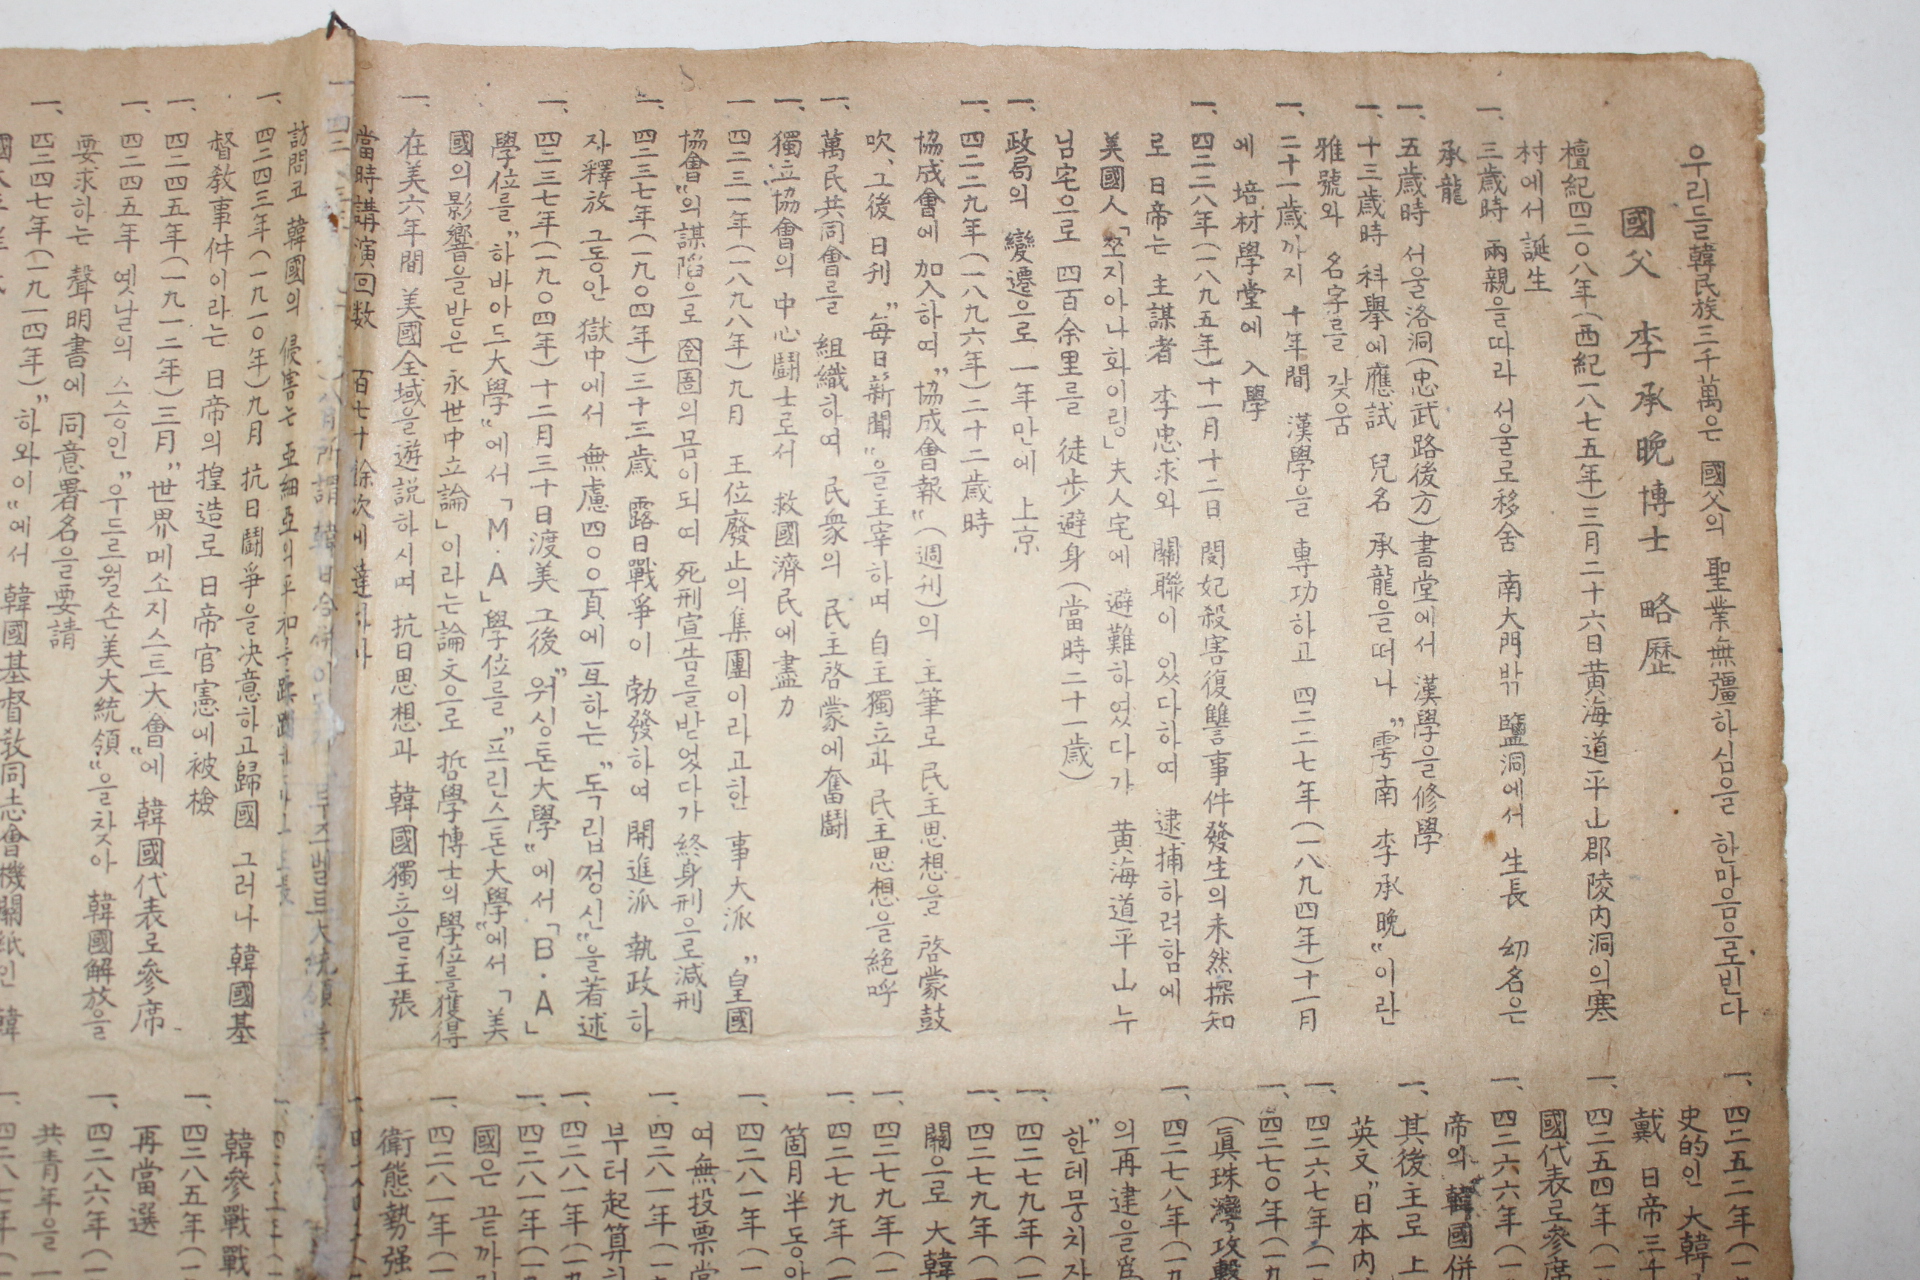 우리들 韓民族 三千萬은 國父의 聖業無彊하심을 한마음으로빈다
國父 李承晩博士 略歷
檀紀四二〇八年(西紀一八七五年)三月二十六日黄海道平山郡陵内洞의寒
村에서 誕生
一、三歲時 兩親을따라 서울로移舍 南大門밖 鹽洞에서 生長 幼名은
承龍
一、五歲時 서울洛洞(忠武路後方)書堂에서 漢學을修學
一、十三歲時 科擧에應試 兒名 承龍을떠나 "雩南 李承晩"이란
雅號와 名字를 갖음
一、二十一歲까지 十年間 漢學을 專功하고 四二二七年(一八九四年)十一月
에 培材學堂에 入學
一、四二二八年(一八九五年)十一月十二日 閔妃殺害復讐事件發生의未然探知
로 日帝는 主謀者 李忠求와 關聯이 있다하여 逮捕하려함에
美國人「쪼지아나화이링」夫人宅에 避難하였다가 黄海道平山누
님宅으로 四百余里를 徒步避身(當時二十一歲)
一、政局의 變遷으로 一年만에 上京
一、四二二九年(一八九六年)二十二歲時
協成會에 加入하여 "協成會報"(週刊)의 主筆로 民主思想을 啓蒙鼓
吹、그後 日刊 "每日新聞"을主宰하며 自主獨立과 民主思想을絶呼
一、萬民共同會를 組織하여 民衆의 民主啓蒙에奮鬪
一、獨立協會의 中心鬪士로서 救國濟民에盡力
一 四二三一年(一八九八年)九月 王位廢止의集團이라고한 事大派 "皇國
協會"의謀陷으로 囹圄의몸이되여 死刑宣告를받었다가終身刑으로減刑
一、四二三七年(一九〇四年)三十三歲 露日戰爭이 勃發하여 開進派 執政하
자釋放 그동안 獄中에서 無慮四〇〇頁에亙하는"독립정신"을着述
一、四二三七年(一九〇四年)十二月三十日渡美 그後 "워싱톤大學"에서「B·A」
學位를 "하바아드大學"에서「M·A」學位를 "프린스톤大學"에서「美
國의影響을받은 永世中立論」이라는論文으로 哲學博士의學位를獲得
一、在美六年間 美國全域을遊說하시며 抗日思想과 韓國獨立을主張
當時講演回数 百七十餘次에達하나
訪問코 韓國의 侵害는 亞細亞의平和를
一、四二四三年(一九一〇年)九月 抗日鬪爭을決意하고歸國 그러나 韓國基
督敎事件이라는 日帝의捏造로 日帝官憲에被檢
一、四二四五年(一九一二年)三月"世界메소지스트大會"에 韓國代表로參席
一、四二四五年 옛날의 스승인 "우드르윌손美大統領"을찾아 韓國解放을
要求하는 聲明書에 同意署名을要請
一、四二四七年(一九一四年)"하와이"에서 韓國基督敎同志會機關紙인 韓
一、四二五二年(一
史的인 大韓
戴 日帝三千
一、四二五四年(一
國代表로參席
一、四二六六年(一
帝의 韓國併
一、其後主로 上
英文"日本内
一、四二六七年(一
一、四二七〇年(一九
(眞珠灣攻擊
一、四二七八年(一九
의再建을爲
"한데뭉치자
一、四二七九年(一
一、四二七九年(一
關으로 大韓
一、四二七九年(一
一、四二七九年(一
箇月半동안
一、四二八一年(一
여無投票當
一、四二八一年(一
부터起算하
一、四二八一年(一九
一、四二八一年(一九
國은 끝까지
一、四二八一年(一
衛態勢强
韓參戰戰
一、四二八五年(一
再當選
一、四二八六年(一
共青年을
一、四二八七年(一